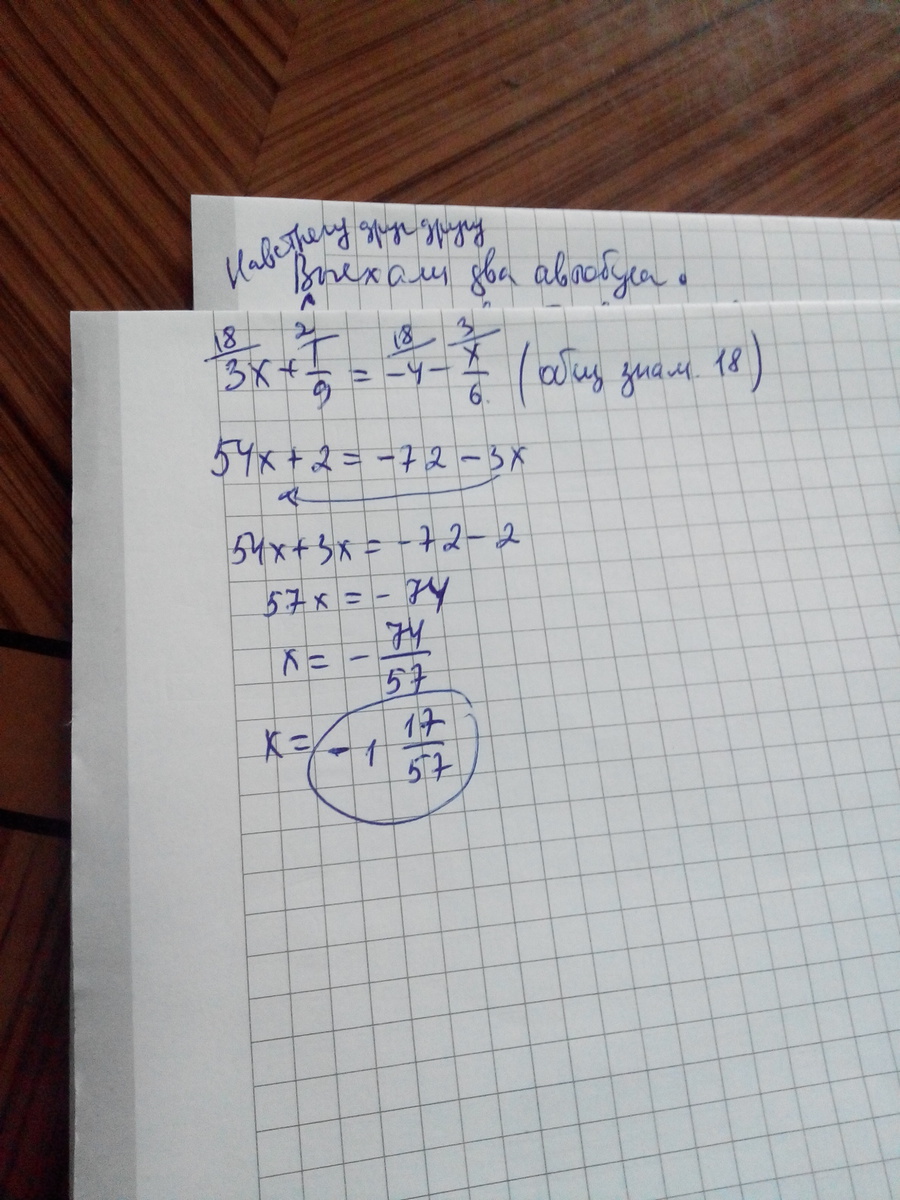 Навстречу друг другу
Выехали два автобуса.
18 2 18 3
3x + 1/9 = -4 - x/6 (общ знам. 18)
54x + 2 = -72 - 3x
54x + 3x = -72 - 2
57x = - 74
x = - 74/57
x = - 1 17/57